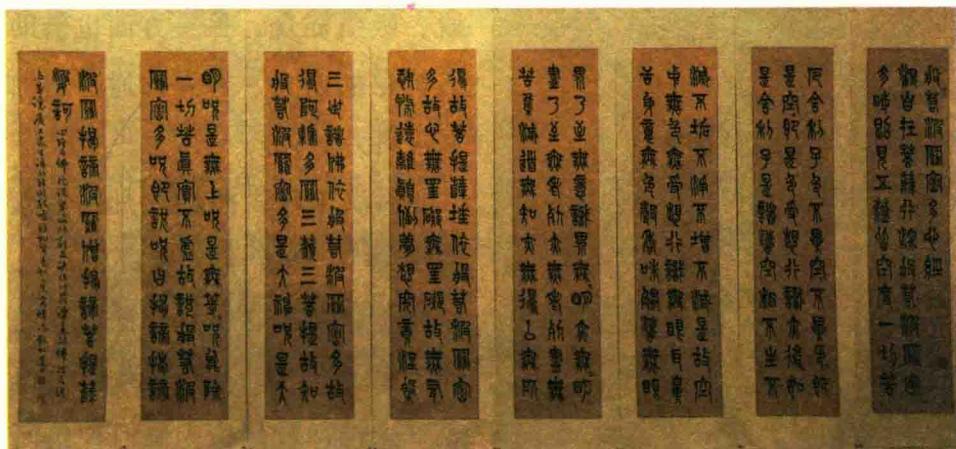 般若波羅密多心經
觀自在菩薩行深般若波羅密
多時照見五蘊皆空度一切苦
厄舍利子色不異空不異色即
是空即是色受想行識亦復如
是舍利子是諸法空相不生不
滅不垢不淨不增不減是故空
中無色無受想行識無眼耳鼻
舌身意無色聲香味觸法無眼
界乃至無意識界無明亦無明
盡乃至無老死亦無老死盡無
苦集滅道無知亦無得以無所
得故菩提薩埵依般若波羅密
多故心無罣礙無罣礙故無有
恐怖遠離顛倒夢想究竟涅槃
三世諸佛依般若波羅密多故
得阿耨多羅三藐三菩提故知
般若波羅密多是大神咒是大
明咒是無上咒是無等咒能除
一切苦真實不虛故說般若波
羅密多咒即說咒曰揭諦揭諦
波羅揭諦波羅僧揭諦菩提薩
婆訶